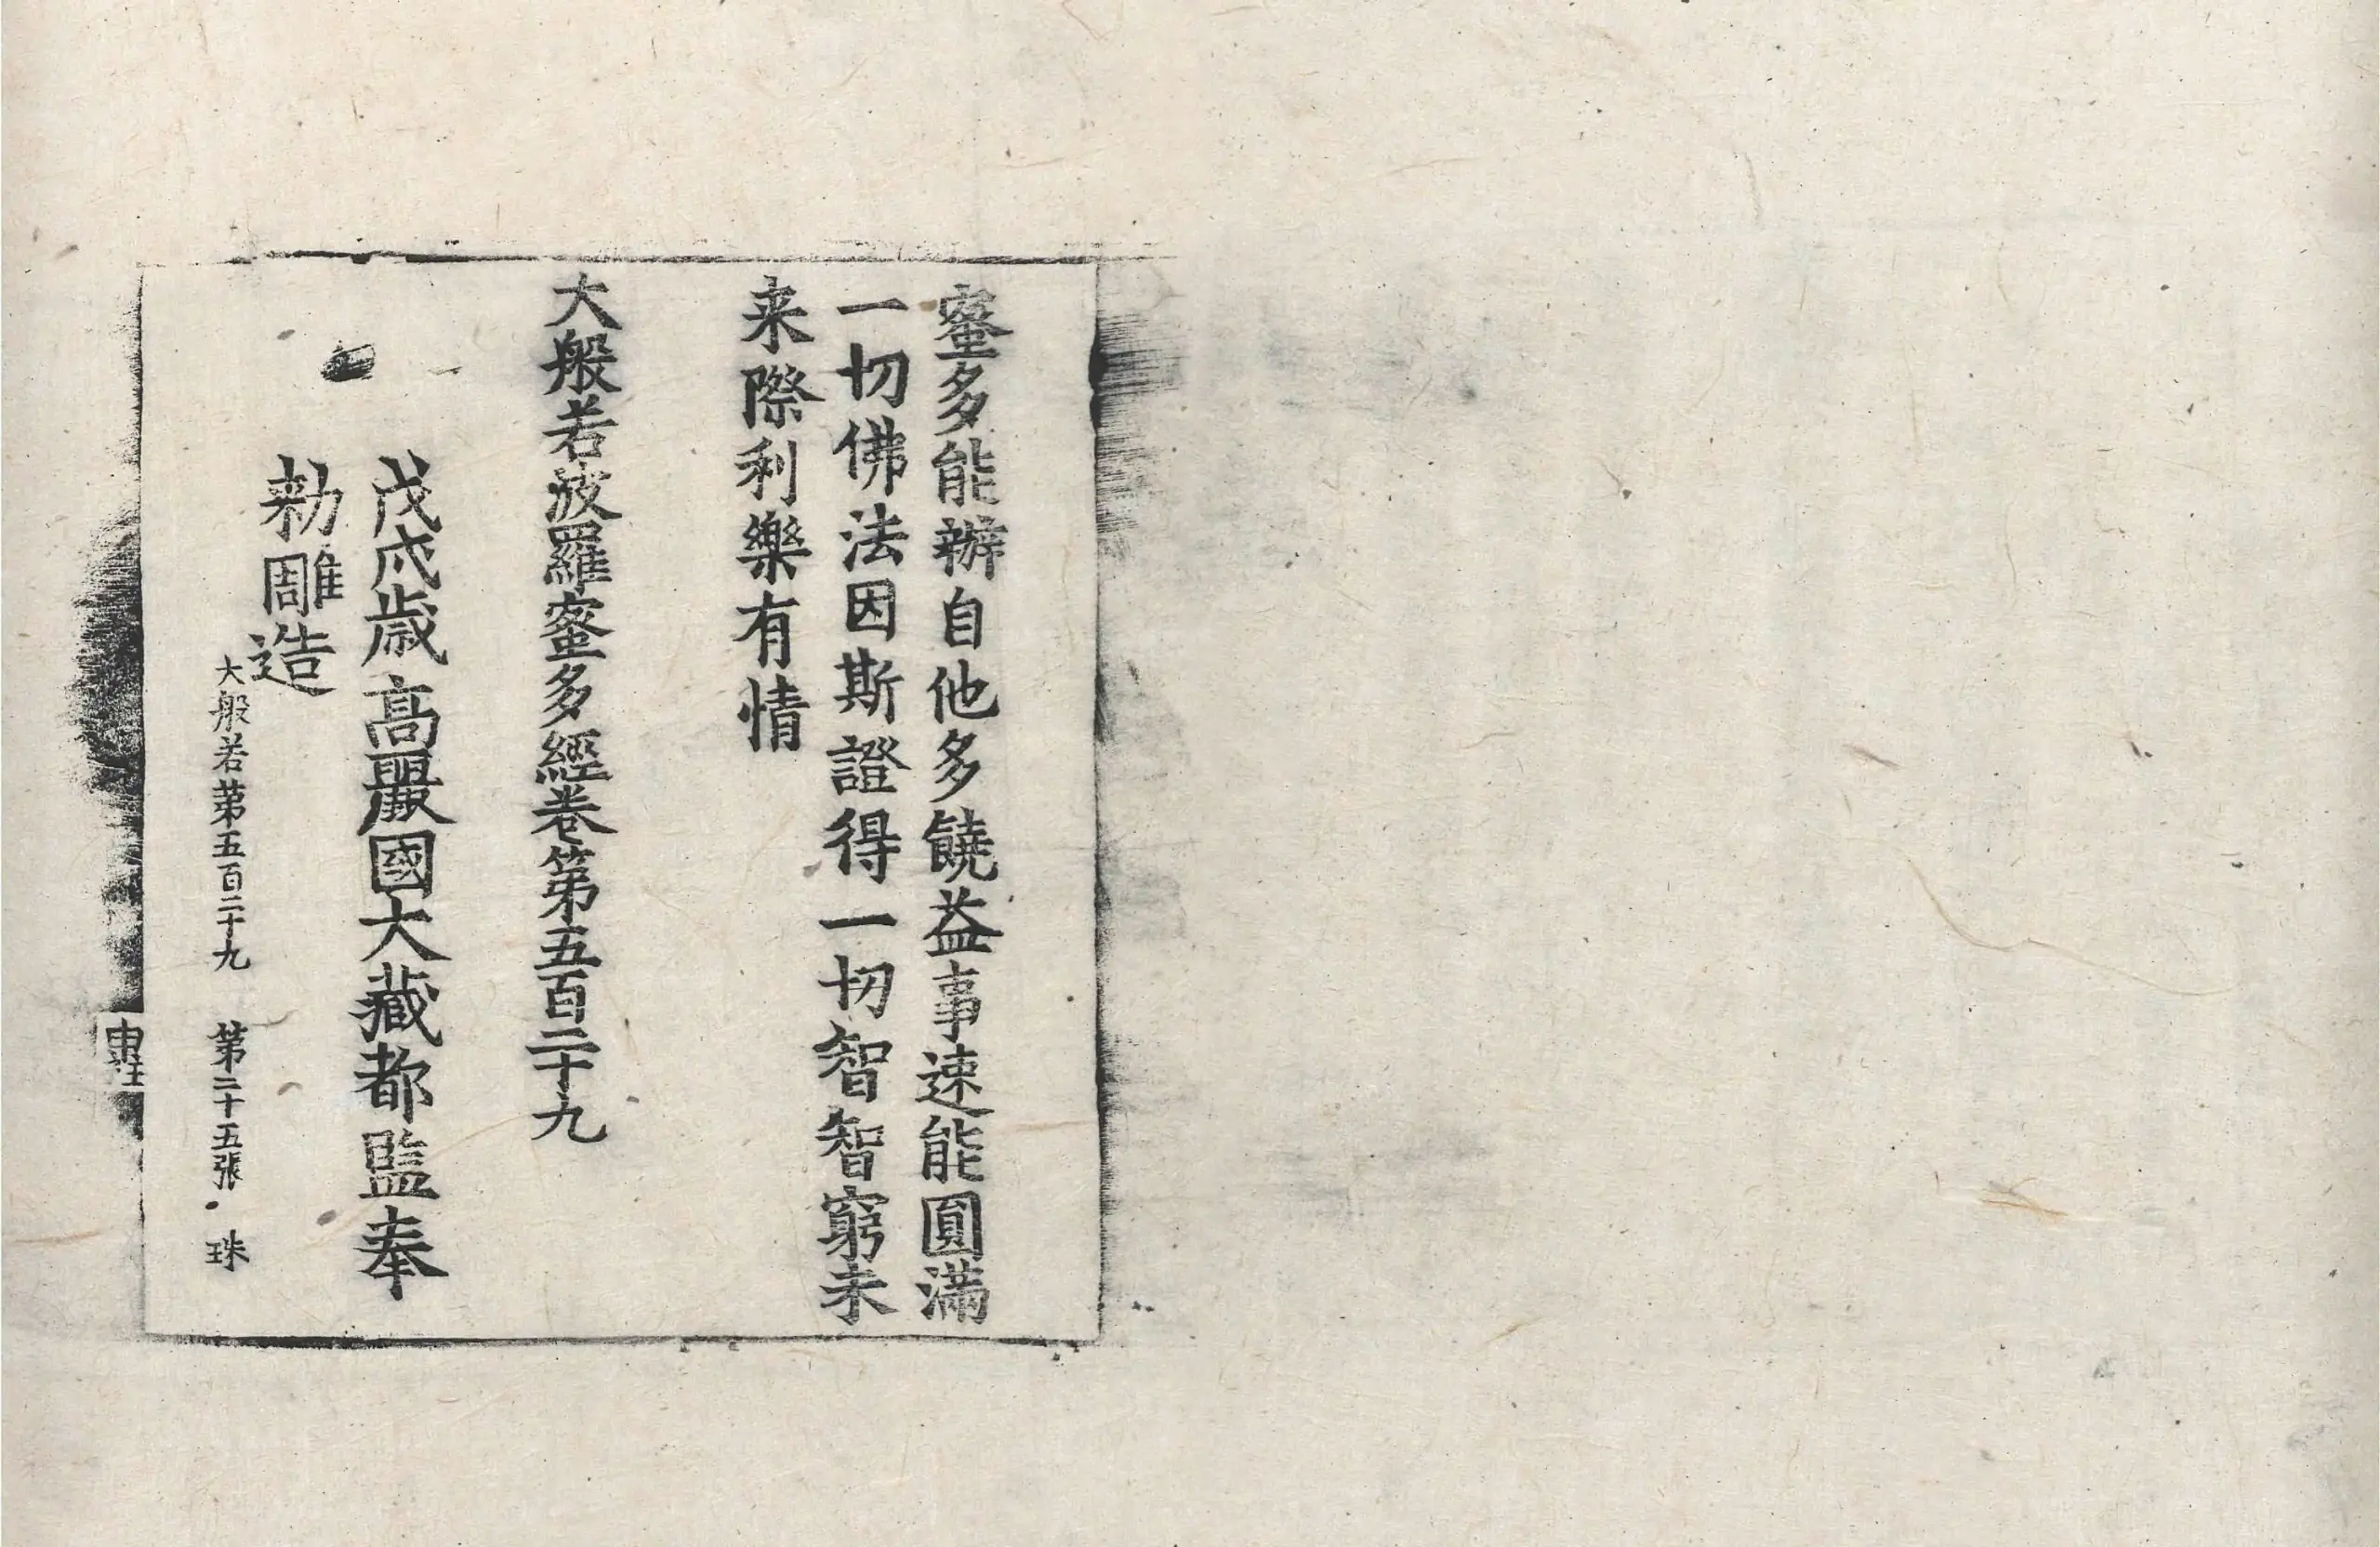 蜜多能辦自他多饒益事速能圓滿
一切佛法因斯證得一切智智窮未
来際利樂有情
大般若波羅蜜多經卷第五百二十九
戊戌歲高麗國大藏都監奉
勑雕造
大般若第五百二十九 第二十五張 珠